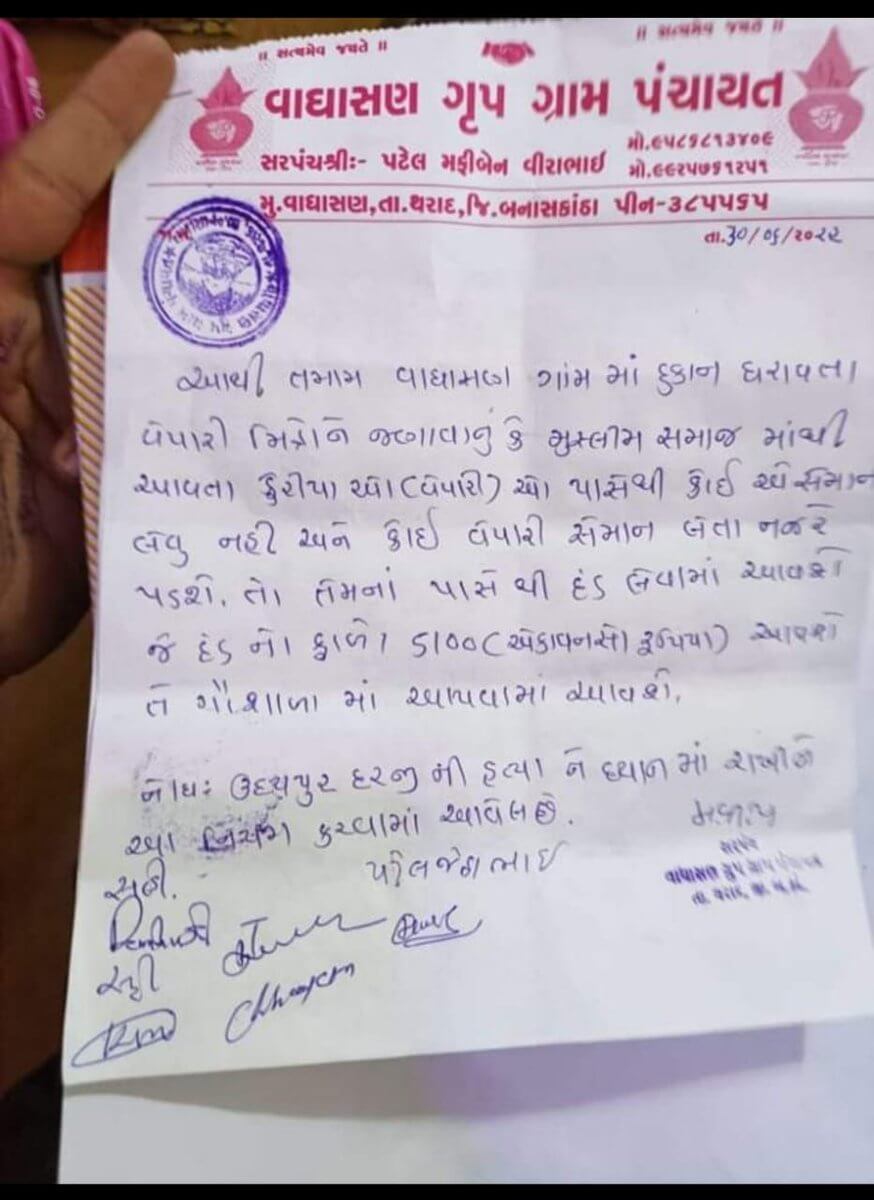 ॥ સત્યમેવ જયતે ॥
॥ સત્યમેવ જયતે ॥
વાઘાસણ ગૃપ ગ્રામ પંચાયત
સરપંચશ્રી:- પટેલ મફીબેન વીરાભાઈ
મો.૯૫૮૬૮૧૩૪૦૯
મો.૯૯૨૫૭૬૧૨૫૧
મુ.વાઘાસણ,તા.થરાદ,જિ.બનાસકાંઠા પીન-૩૮૫૫૬૫
તા.૩૦/૦૬/૨૦૨૨
આથી તમામ વાઘાસણ ગામ માં દુકાન ધરાવતા
વેપારી મિત્રોને જણાવાનું કે મુસ્લીમ સમાજ માંથી
આવતા ફેરીયા ઓ (વેપારી) ઓ પાસેથી કોઈ એ સામાન
લેવુ નહી અને કોઈ વેપારી સામાન લેતા નજરે
પડશે. તો તેમનાં પાસે થી દંડ લેવામાં આવશે
જે દંડ નો ફાળો 5100 (એકાવનસો રૂપિયા) આવશે
તે ગૌશાળા માં આપવામાં આવશે.
નોંધ: ઉદયપુર દરજી ની હત્યા ને ધ્યાન માં રાખીને
આ નિયમ કરવામાં આવેલ છે.
સહી.
સરપંચ
વાઘાસણ ગ્રુપ ગ્રામ પંચાયત
સહી